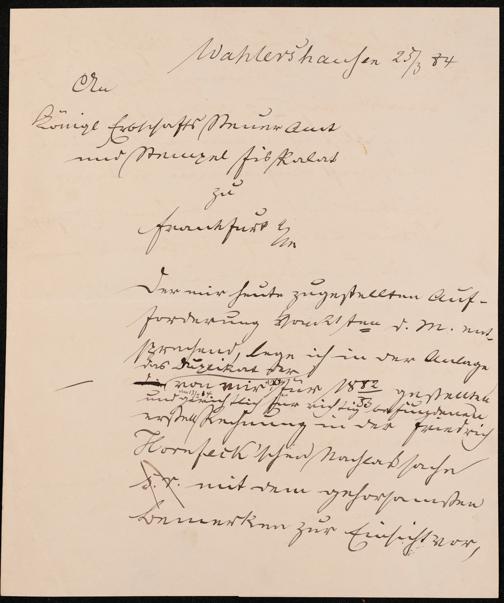 Wahlershausen 25/3 84
An
Königl Erbschafts Steuer Amt
und Stempel Fiskalat
zu
Frankfurt a/M
Der mir heute zugestellten Auf-
forderung vom ten d. M. ent-
sprechend, lege ich in der Anlage
das Duplikat der
von mir für 1882 gestellten
und gerichtlich für richtig befundenen
ersten Rechnung in der Friedrich
Hornfeck'schen Nachlaßsache
mit dem gehorsamsten
Bemerken zur Einsicht vor,